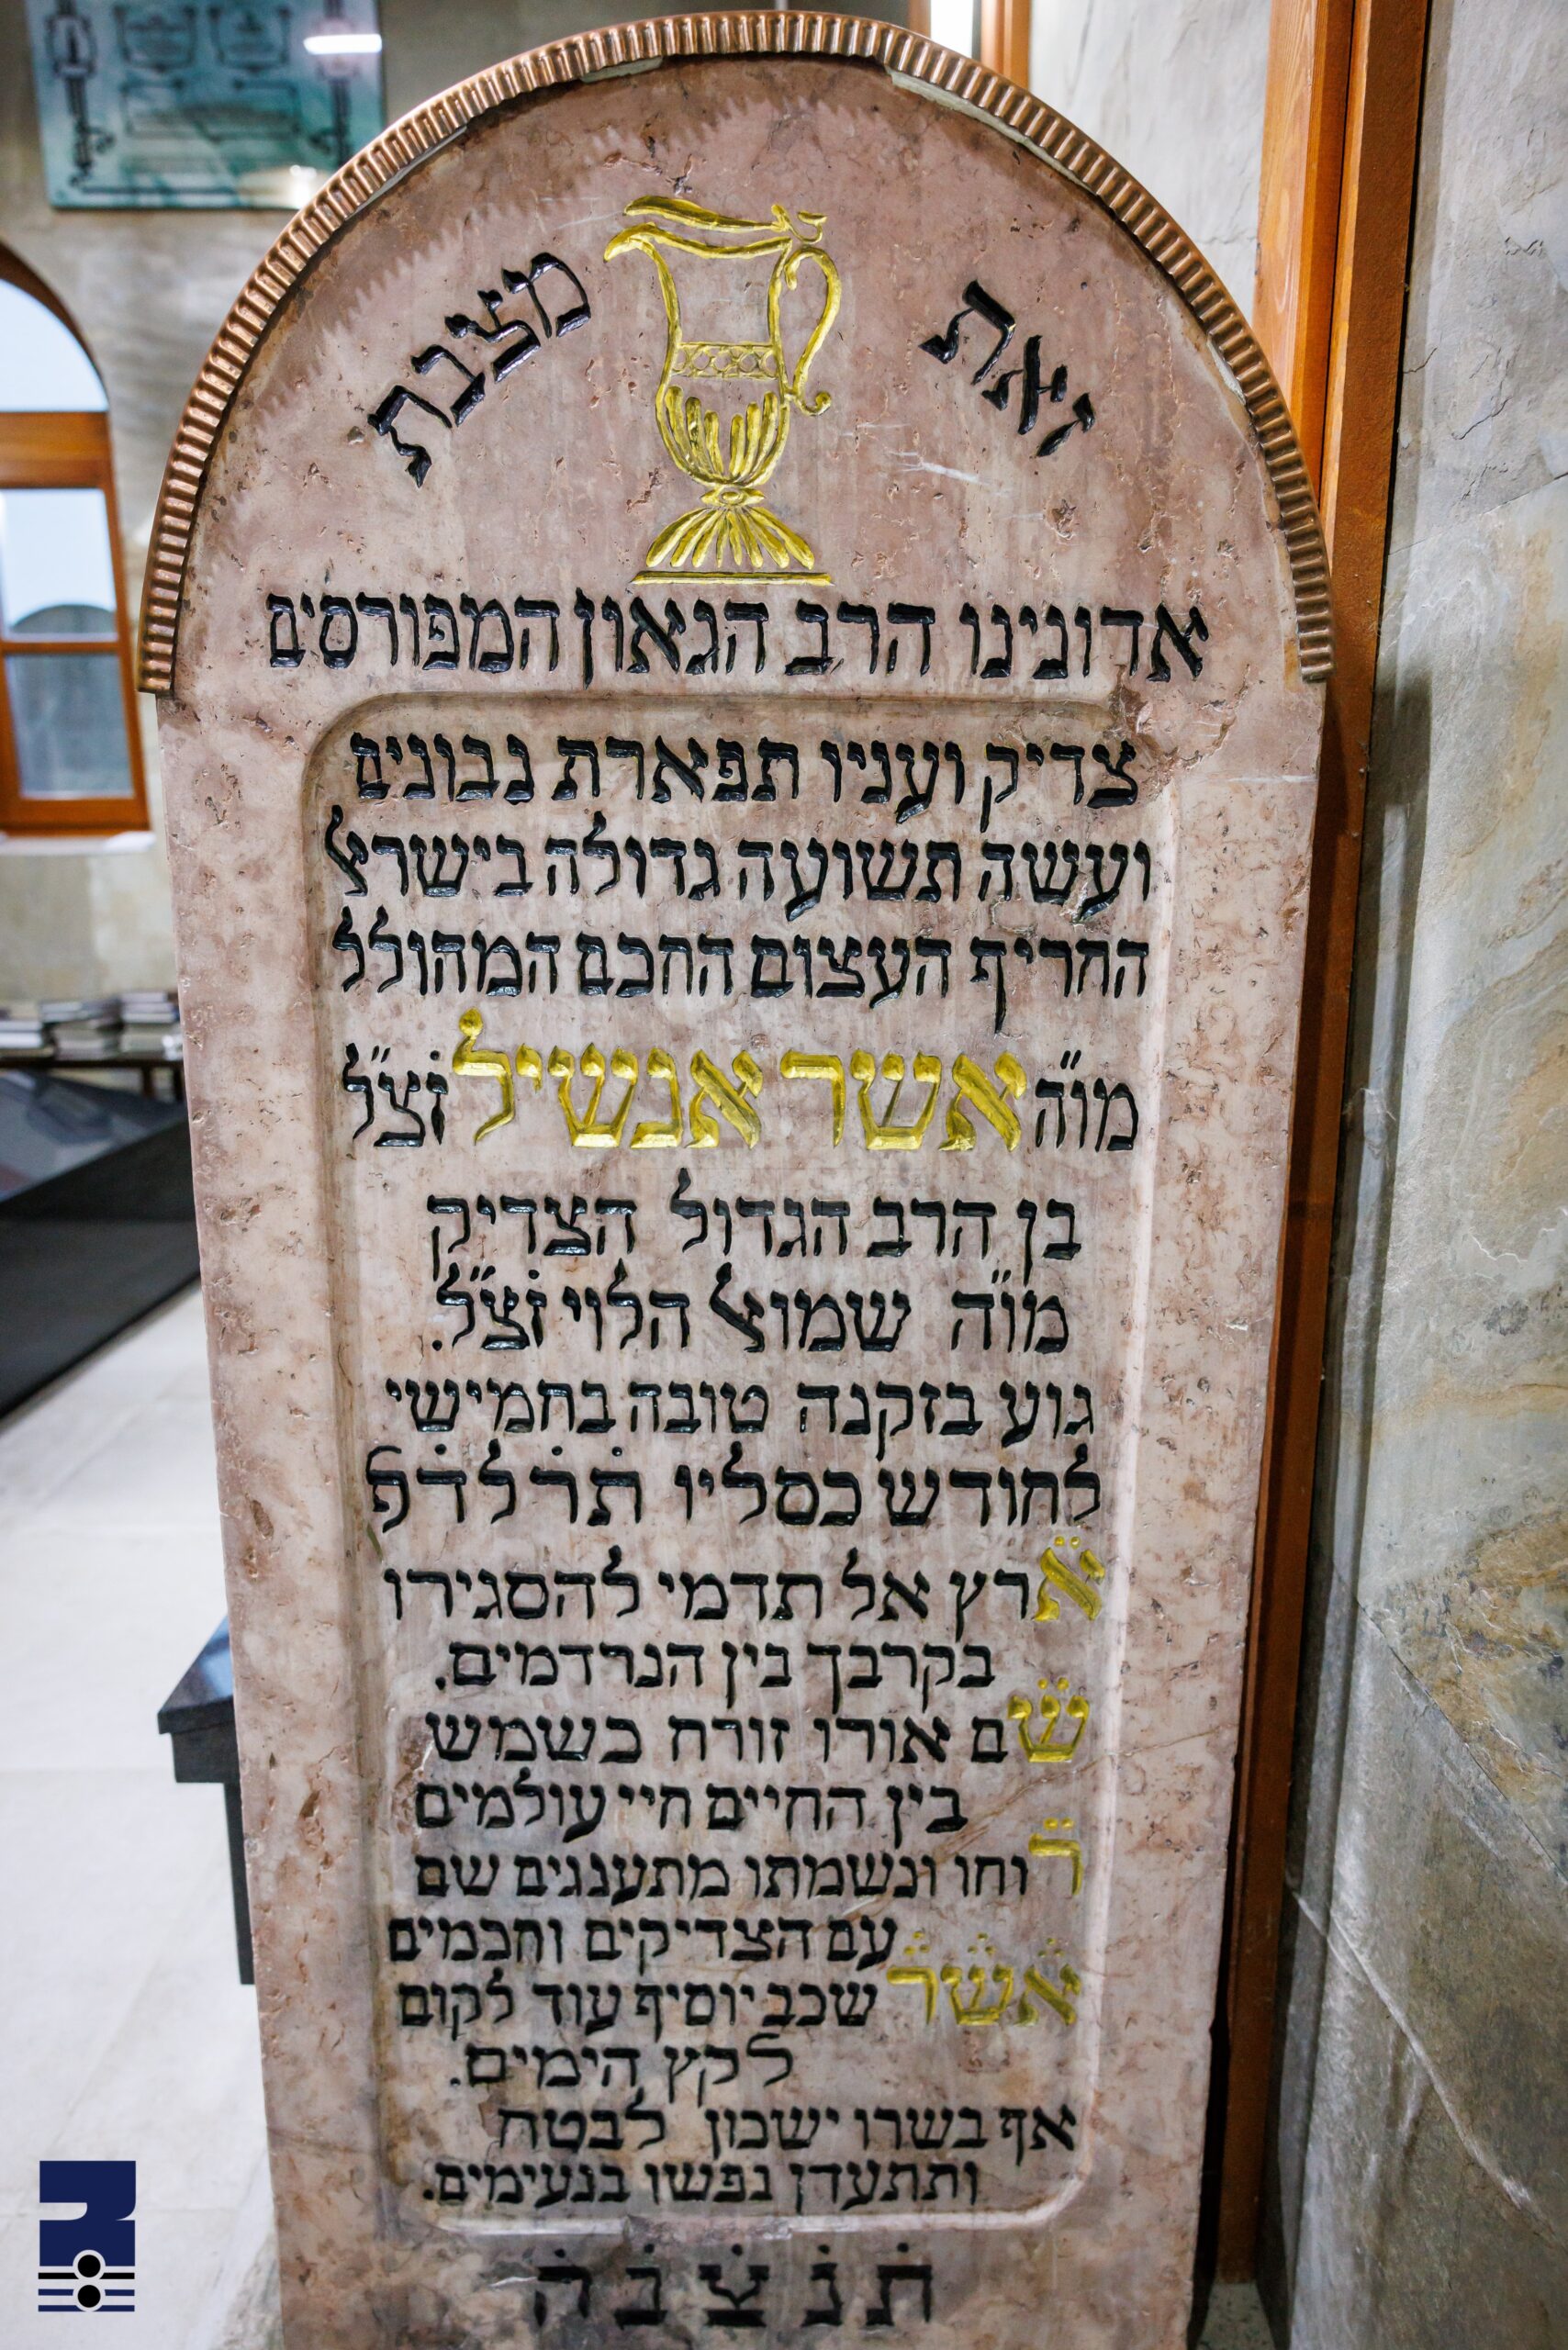 זאת מצבת
אדונינו הרב הגאון המפורסים
צדיק ועניו תפארת נבונים
ועשה תשועה גדולה בישראל
החריף העצום החכם המהולל
מו״ה אשר אנשיל זצ״ל
בן הרב הגדול הצדיק
מו״ה שמואל הלוי זצ״ל.
גוע בזקנה טובה בחמישי
לחודש כסליו ת׳ר׳ל׳ד׳ לפ
ארץ אל תדמי להסגירו
בקרבך בין הנרדמים.
שם אורו זורח כשמש
בין החיים חיי עולמים
רוחו ונשמתו מתענגים שם
עם הצדיקים וחכמים
אשר שכב יוסיף עוד לקום
לקץ הימים.
אף בשרו ישכון לבטח
ותתעדן נפשו בנעימים.
ת׳נ׳צ׳ב׳ה׳